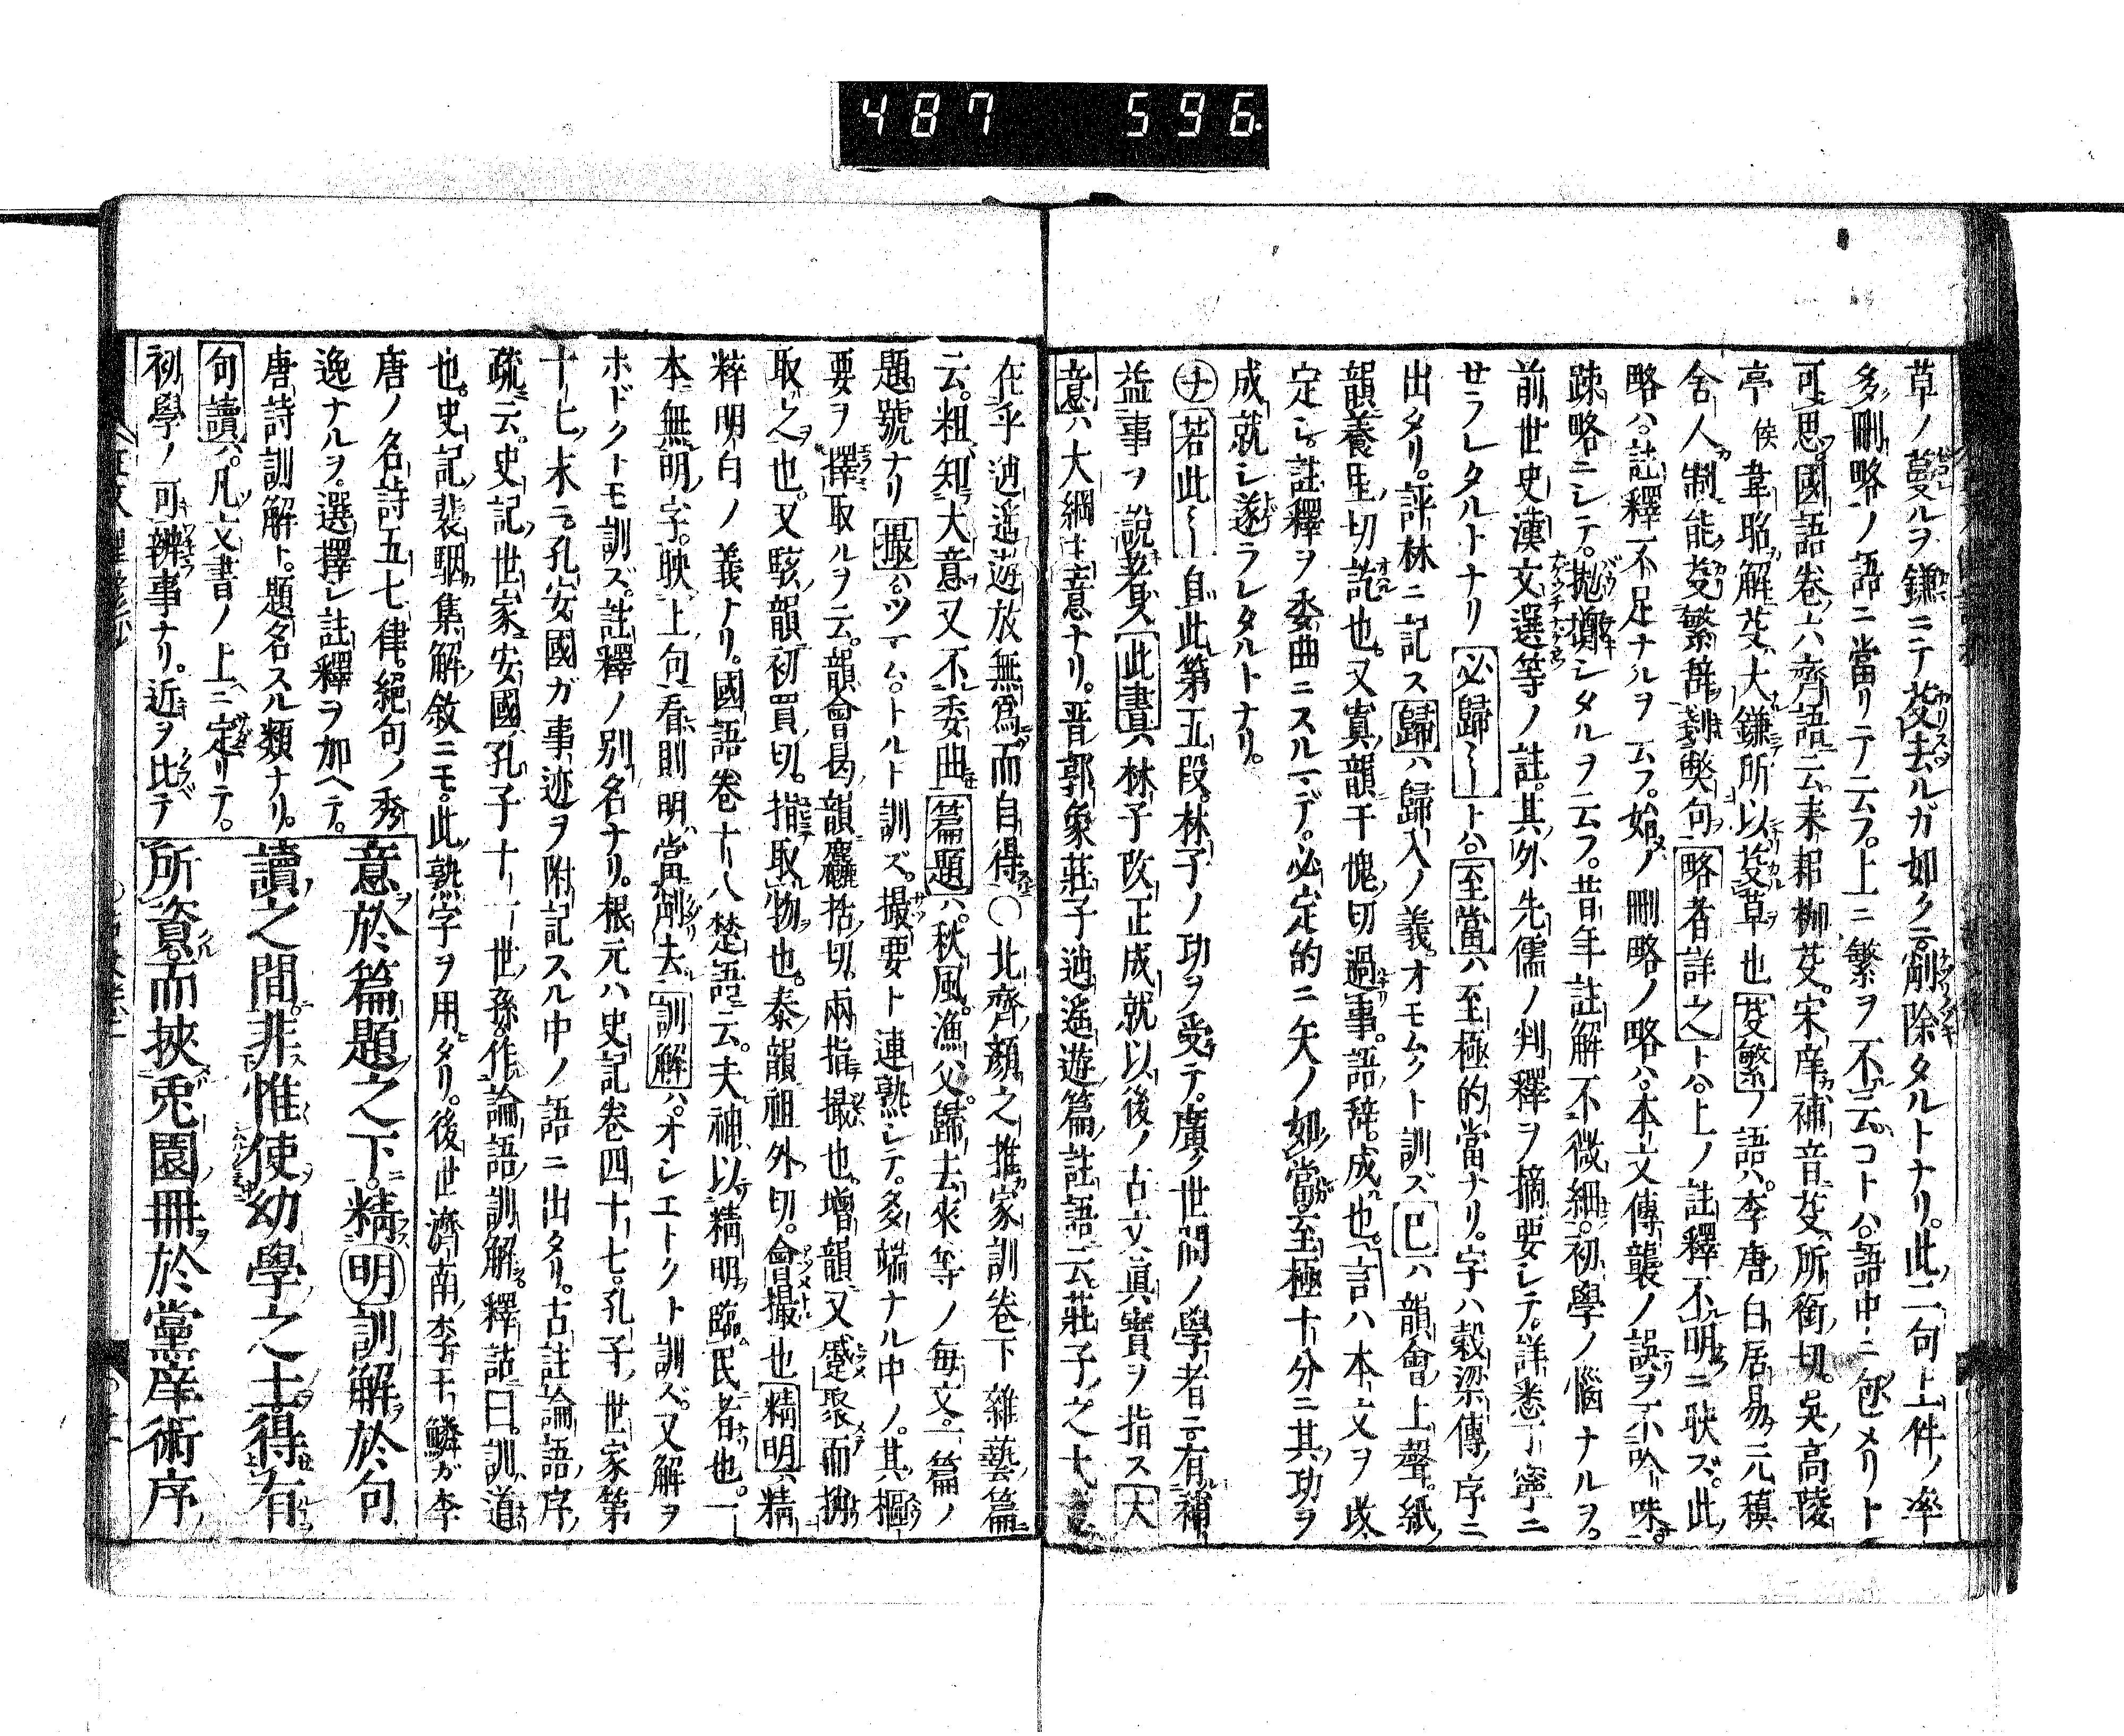 487 596.
草ノ蔓ルヲ鎌ニテ芟去ルガ如ク云剷除タルトナリ。此ノ二句上件ノ率
多刪略ノ語ニ當リニテ云フ。上ニ繁ヲ不云コトハ。語中ニ包メリト
可思國語卷六齊語ニ云耒耜枷芟。宋庠補音芟所銜切。吳高陵
亭候韋昭解芟大鎌所以芟草也芟繁ノ語ハ。李唐白居易元稹
舍人制能芟繁辞剗弊句略者詳之トハ。上ノ註釋不明ニ映ズ。此
略ハ。註釋不足ナルヲ云フ。始ノ刪略ノ略ハ。本文傳襲ノ誤ヲ不吟味
踈略ニシテ。拋擲シタルヲ云フ。昔年註解不微細。初學ノ惱ナルヲ。
前世史漢文選等ノ註。其外先儒ノ判釋ヲ摘要シテ。詳悉丁寧ニ
セラレタルトナリ必歸トハ。至當ハ至極的當ナリ。字ハ穀梁傳序ニ
出タリ。評林ニ記ス歸ハ歸入ノ義。オモムクト訓ズ已ハ韻會上聲。紙
韻養里切訖也。又寘韻于愧切過事。語辞。成也。言ハ本文ヲ改
定シ。註釋ヲ委曲ニスルマデ。必定的ニ矢ノ如當。至極十分ニ其功ヲ
成就シ遂ラレタルトナリ。
ナ若此自此第五段。林子ノ功ヲ受テ。廣ク世間ノ學者ニ有補
益事ヲ說著ス此書ハ林子改正成就以後ノ古文眞寶ヲ指ス大
意ハ大綱主意ナリ。晋郭象莊子逍遥遊篇註語云莊子之大意
在乎逍遥遊放無爲而自得〇北齊顏之推家訓卷下雜藝篇
云。粗知大意又不委曲篇題ハ。秋風。漁父。歸去來等ノ每文一篇ノ
題號ナリ撮ハ。ツマム。トルト訓ズ。撮要ト連熟シテ。多端ナル中ノ。其樞
要ヲ擇取ルヲ云。韻會曷韻麤括切。兩指撮也。增韻又蹙聚而捎
取之也。又駭韻初買切。指取物也。泰韻祖外切。會撮也精明ハ精
粹明白ノ義ナリ。國語卷十八楚語ニ云。夫神以精明臨民者也。一
本無明字。映上句看則明當剷去訓解ハ。オシエトクト訓ズ。又解ヲ
ホドクトモ訓ズ。註釋ノ別名ナリ。根元ハ史記卷四十七。孔子世家第
十七末ニ孔安國ガ事迹ヲ附記スル中ノ語ニ出タリ。古註論語序
疏云。史記世家安國孔子十一世孫。作論語訓解。釋詁曰。訓道
也。史記裴駰集解敘ニモ。此熟字ヲ用タリ。後世濟南李于鱗ガ李
唐ノ名詩五七律。絕句ノ秀
逸ナルヲ。選擇シ註釋ヲ加ヘテ。
唐詩訓解ト。題名スル類ナリ。
句讀ハ。凡文書ノ上ニ定リテ。
初學ノ可辨事ナリ。近ヲ比テ
意於篇題之下。精明訓解於句
讀之間。非惟使幼學之士得有
所資而挾兎園冊於黨庠術序